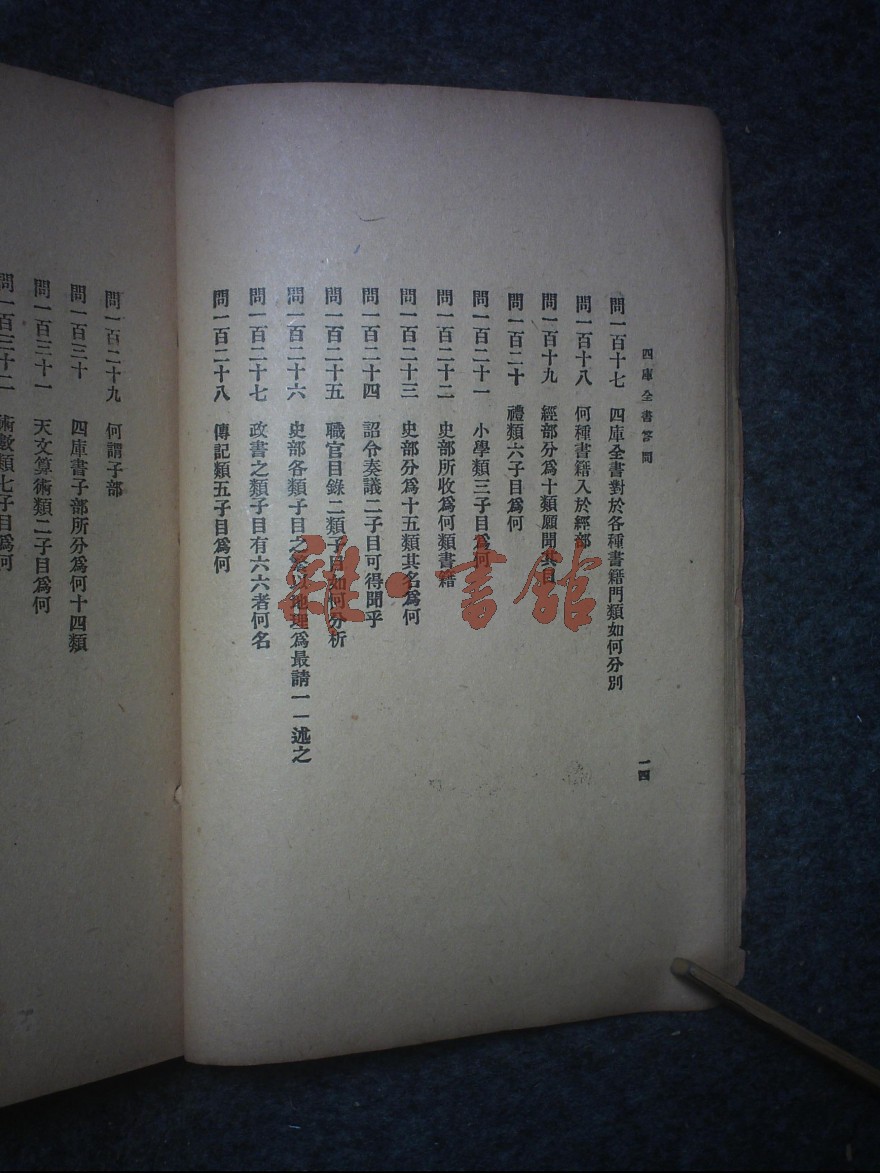 四庫全書答問
一四
問一百十七 四庫全書對於各種書籍門類如何分別
問一百十八 何種書籍入於經部
問一百十九 經部分爲十類願聞其目
問一百二十 禮類六子目爲何
問一百二十一 小學類三子目爲何
問一百二十二 史部所收爲何類書籍
問一百二十三 史部分爲十五類其名爲何
問一百二十四 詔令奏議二子目可得聞乎
問一百二十五 職官目錄二類子目如何分析
問一百二十六 史部各類子目之 以地理爲最請一一述之
問一百二十七 政書之類子目有六六者何名
問一百二十八 傳記類五子目爲何
問一百二十九 何謂子部
問一百三十 四庫書子部所分爲何十四類
問一百三十一 天文算術類二子目爲何
問一百三十二 術數類七子目爲何
雜·書館